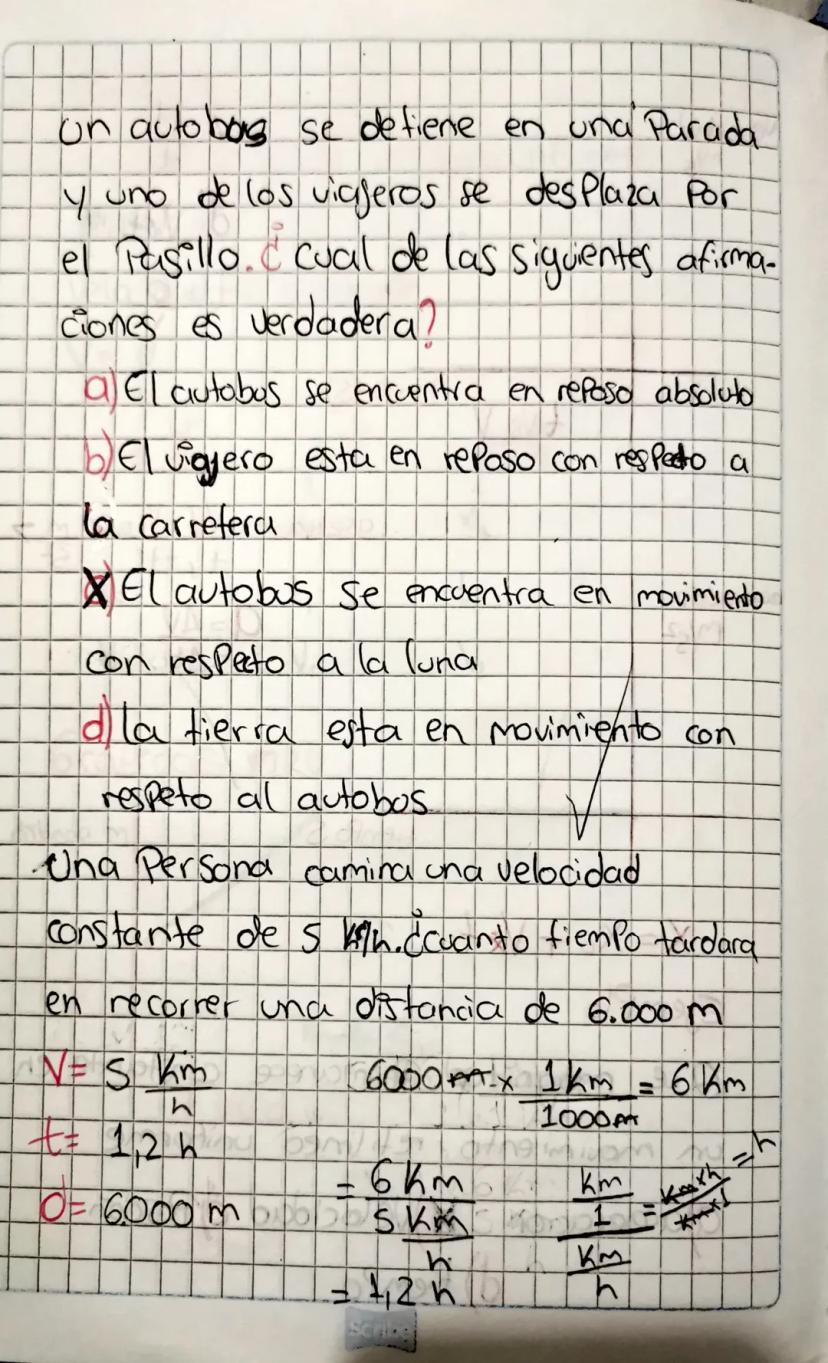 un autobus se detiene en una Parada
y uno de los viajeros se desplaza Por
el Pasillo. ¿Cual de las siguientes afirma-
ciones es verdadera?
a) El autobus se encuentra en reposo absoluto
b) El viajero esta en reposo con respecto a
la carretera
X) El autobus se encuentra en movimiento
con respecto a la luna
d) la tierra esta en movimiento con
respeto al autobos
Una Persona camina una velocidad
constante de 5 km/h. ¿cuanto tiempo tardara
en recorrer una distancia de 6.000 m
V= 5 Km/h 6000 m x 1 Km/1000m = 6 Km
t= 1,2 h
d= 6000 m = 6 Km / 5 Km/h Km/1 / Km/h = Kmxh/Kmx1 = h
= 1,2 h